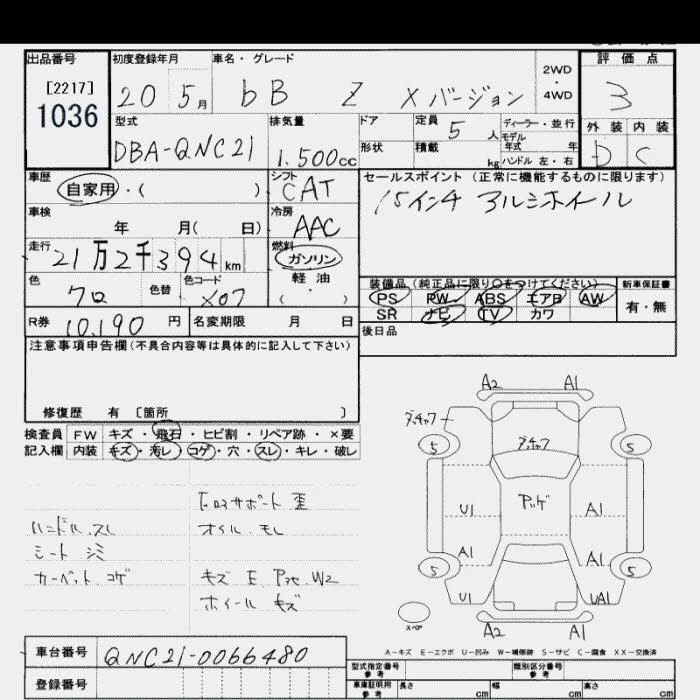 出品番号 初度登録年月 車名・グレード 2WD・4WD 評価点
[2217]
1036
20 5月 bB Z Xバージョン 3
型式 排気量 ドア 定員 5人 ディーラー・並行 外装 内装
モデル年式 年
DBA-QNC21 1.500cc 形状 積載 kg ハンドル 左・右 D C
車歴 自家用・( ) シフト CAT セールスポイント (正常に機能するものに限ります)
15インチ アルミホイール
車検 年 月( 日) 冷房 AAC
走行 21万2千394km 燃料 ガソリン・軽油・( )
装備品(純正品に限り〇をつけてください) 新車保証書
色 クロ 色替 色コード X07 PS PW ABS エアB AW 有・無
SR ナビ TV カワ
R券 10,190円 名変期限 月 日 後日品
注意事項申告欄(不具合内容等は具体的に記入して下さい)
修復歴 有 [箇所 ]
検査員 FW キズ・飛石・ヒビ割・リペア跡・×要
記入欄 内装 キズ・汚レ・コゲ・穴・スレ・キレ・破レ
サポート 歪
ハンドル スレ オイル モレ
シート シミ
カーペット コゲ キズ E W2
ホイール キズ
A2 A1
5 5
U1 A1
A1
5 5
U1 UA1
スペア
A2 A1
A-キズ E-エクボ U-凹み W-補修跡 S-サビ C-腐食 XX-交換済
車台番号 QNC21-0066480
型式指定番号 参考 類別区分番号 参考
登録番号
車庫証明用 参考 長さ cm 幅 cm 高さ cm